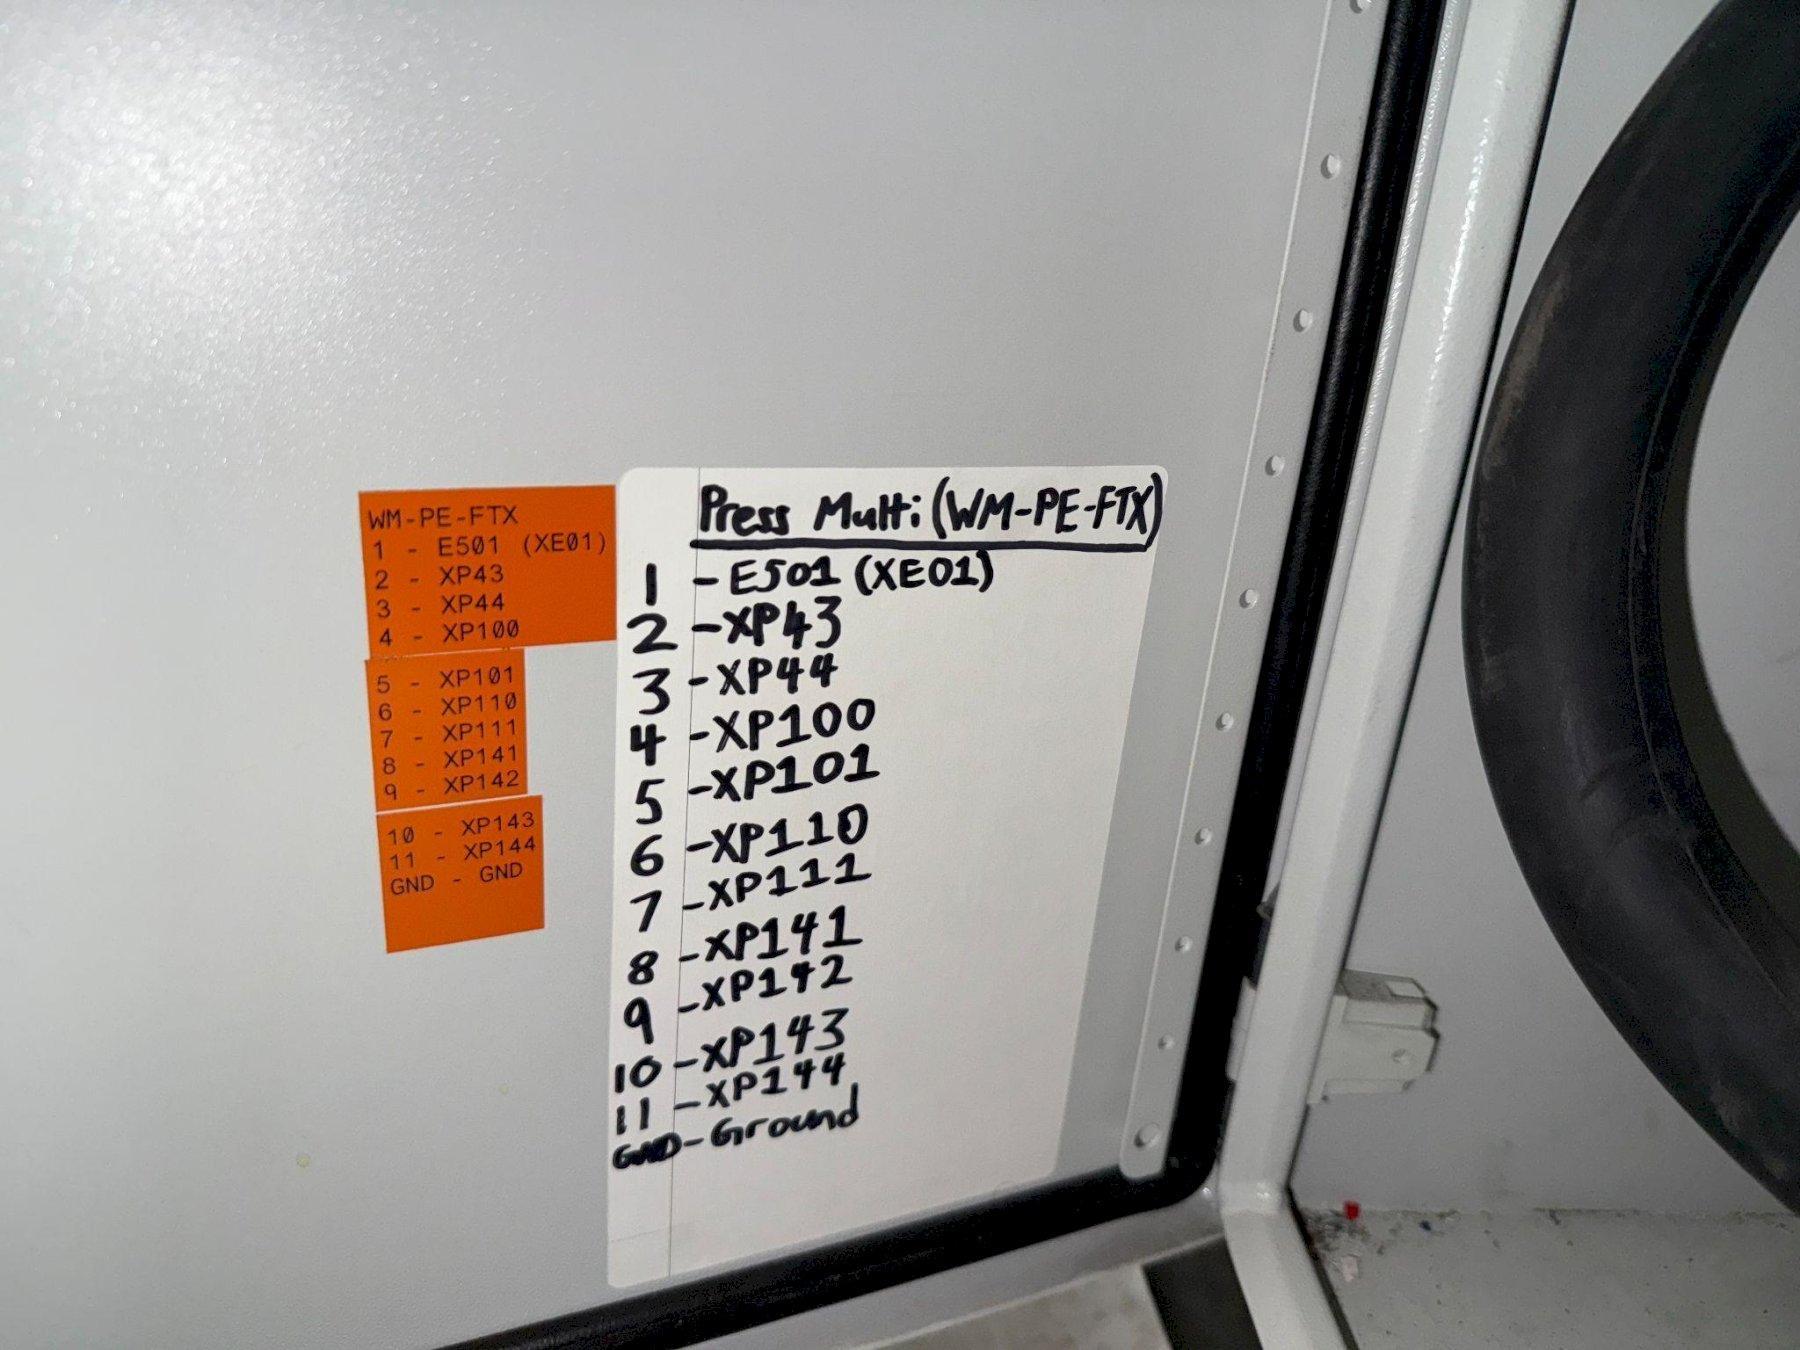 WM-PE-FTX
1 - E501 (XE01)
2 - XP43
3 - XP44
4 - XP100
5 - XP101
6 - XP110
7 - XP111
8 - XP141
9 - XP142
10 - XP143
11 - XP144
GND - GND
Press Multi (WM-PE-FTX)
1 - E501 (XE01)
2 - XP43
3 - XP44
4 - XP100
5 - XP101
6 - XP110
7 - XP111
8 - XP141
9 - XP142
10 - XP143
11 - XP144
GND - Ground